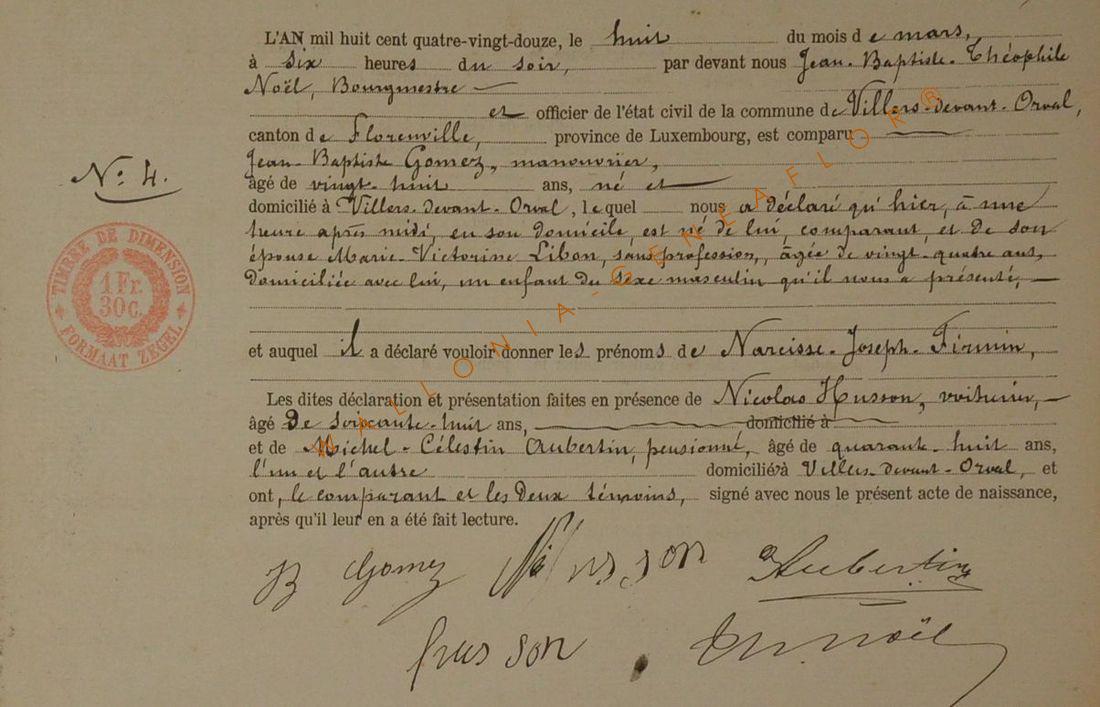 L'AN mil huit cent quatre-vingt-douze, le huit du mois de mars,
à six heures du soir, par devant nous Jean-Baptiste-Théophile
Noël, Bourgmestre
et officier de l'état civil de la commune de Villers-devant-Orval,
canton de Florenville, province de Luxembourg, est comparu
Jean-Baptiste Gomez, manouvrier,
N° 4.
âgé de vingt-huit ans, né et
domicilié à Villers-devant-Orval, lequel nous a déclaré qu'hier, à une
heure après midi, en son domicile, est né de lui, comparant, et de son
épouse Marie-Victorine Libon, sans profession, âgée de vingt-quatre ans,
domiciliée avec lui, un enfant du sexe masculin qu'il nous a présenté,
TIMBRE DE DIMENSION
1 Fr.
30C.
FORMAAT ZEGEL
et auquel il a déclaré vouloir donner les prénoms de Narcisse-Joseph-Firmin,
Les dites déclaration et présentation faites en présence de Nicolas Husson, voiturier,
âgé de soixante-huit ans, domicilié à
et de Michel-Célestin Aubertin, pensionné, âgé de quarante-huit ans,
l'un et l'autre domicilié à Villers-devant-Orval, et
ont, le comparant et les deux témoins, signé avec nous le présent acte de naissance,
après qu'il leur en a été fait lecture.
WALLONIA-GENEAFLOR®
JB Gomez Ni husson Aubertin
husson Th Noël